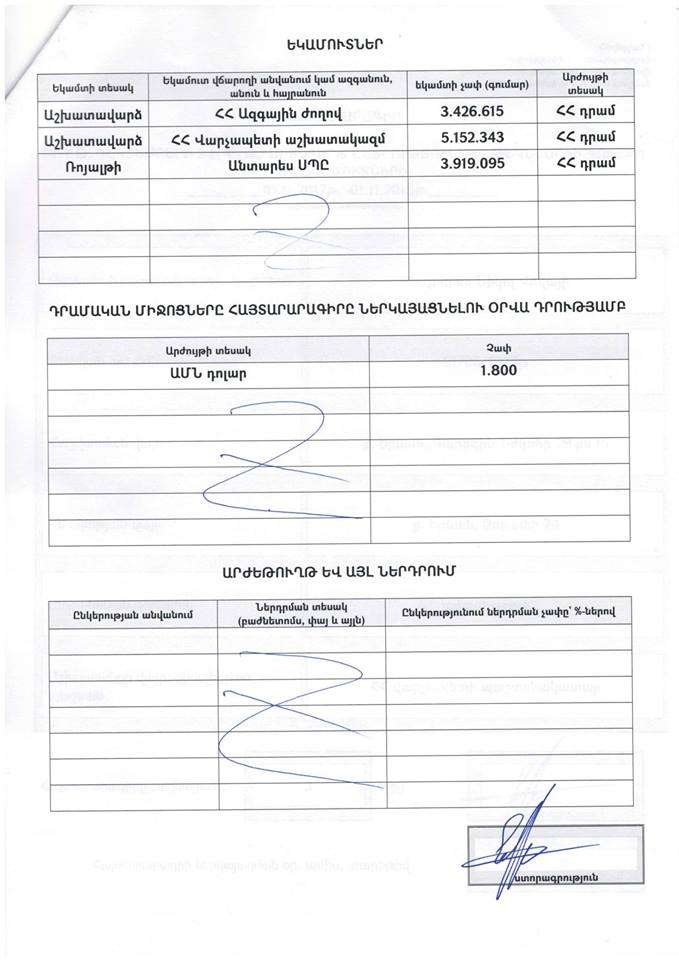 ԵԿԱՄՈՒՏՆԵՐ
Եկամտի տեսակ | Եկամուտ վճարողի անվանում կամ ազգանուն, անուն և հայրանուն | եկամտի չափ (գումար) | Արժույթի տեսակ
Աշխատավարձ | ՀՀ Ազգային ժողով | 3.426.615 | ՀՀ դրամ
Աշխատավարձ | ՀՀ Վարչապետի աշխատակազմ | 5.152.343 | ՀՀ դրամ
Ռոյալթի | Անտարես ՍՊԸ | 3.919.095 | ՀՀ դրամ
ԴՐԱՄԱԿԱՆ ՄԻՋՈՑՆԵՐԸ ՀԱՅՏԱՐԱՐԱԳԻՐԸ ՆԵՐԿԱՅԱՑՆԵԼՈՒ ՕՐՎԱ ԴՐՈՒԹՅԱՄԲ
Արժույթի տեսակ | Չափ
ԱՄՆ դոլար | 1.800
ԱՐԺԵԹՈՒՂԹ ԵՎ ԱՅԼ ՆԵՐԴՐՈՒՄ
Ընկերության անվանում | Ներդրման տեսակ (բաժնետոմս, փայ և այլն) | Ընկերությունում ներդրման չափը՝ %-ներով
ստորագրություն